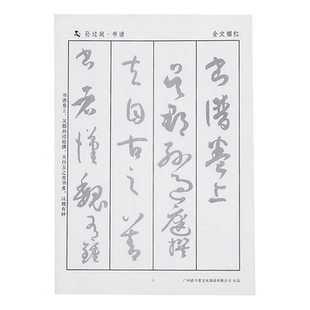 孙过庭·书谱
全文描红
书谱卷上
吴郡孙过庭撰
夫自古之善
书者汉魏有钟
书谱卷上。吴郡孙过庭撰。夫自古之善书者，汉魏有钟